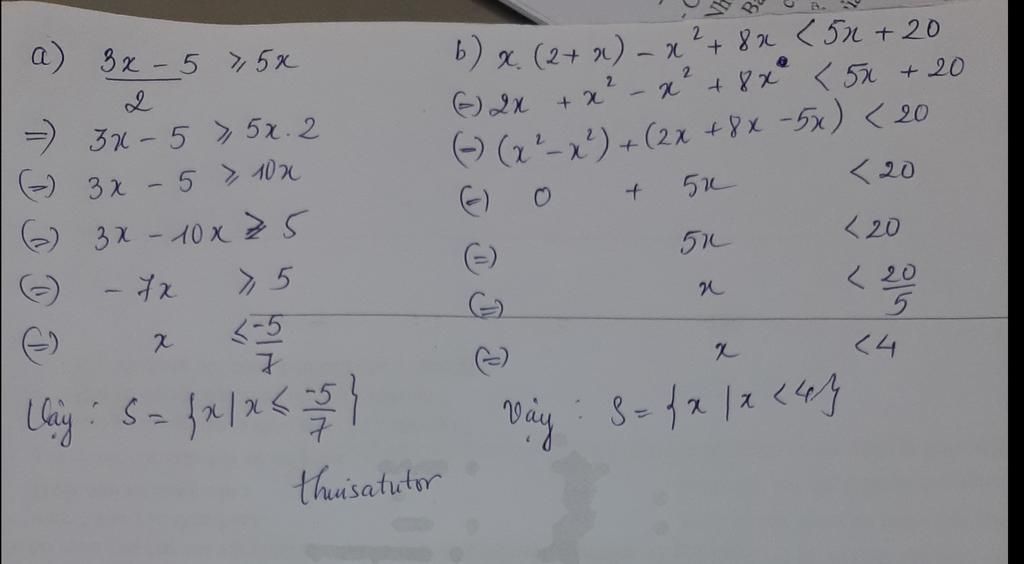 a) (3x - 5)/2 ⩾ 5x
=) 3x - 5 ⩾ 5x . 2
(=) 3x - 5 ⩾ 10x
(=) 3x - 10x ⩾ 5
(=) - 7x ⩾ 5
(=) x ⩽ -5/7
Vậy : S = {x | x ⩽ -5/7}
b) x. (2 + x) - x² + 8x < 5x + 20
(=) 2x + x² - x² + 8x < 5x + 20
(=) (x² - x²) + (2x + 8x - 5x) < 20
(=) 0 + 5x < 20
(=) 5x < 20
(=) x < 20/5
(=) x < 4
Vậy : S = {x | x < 4}
thuisatutor